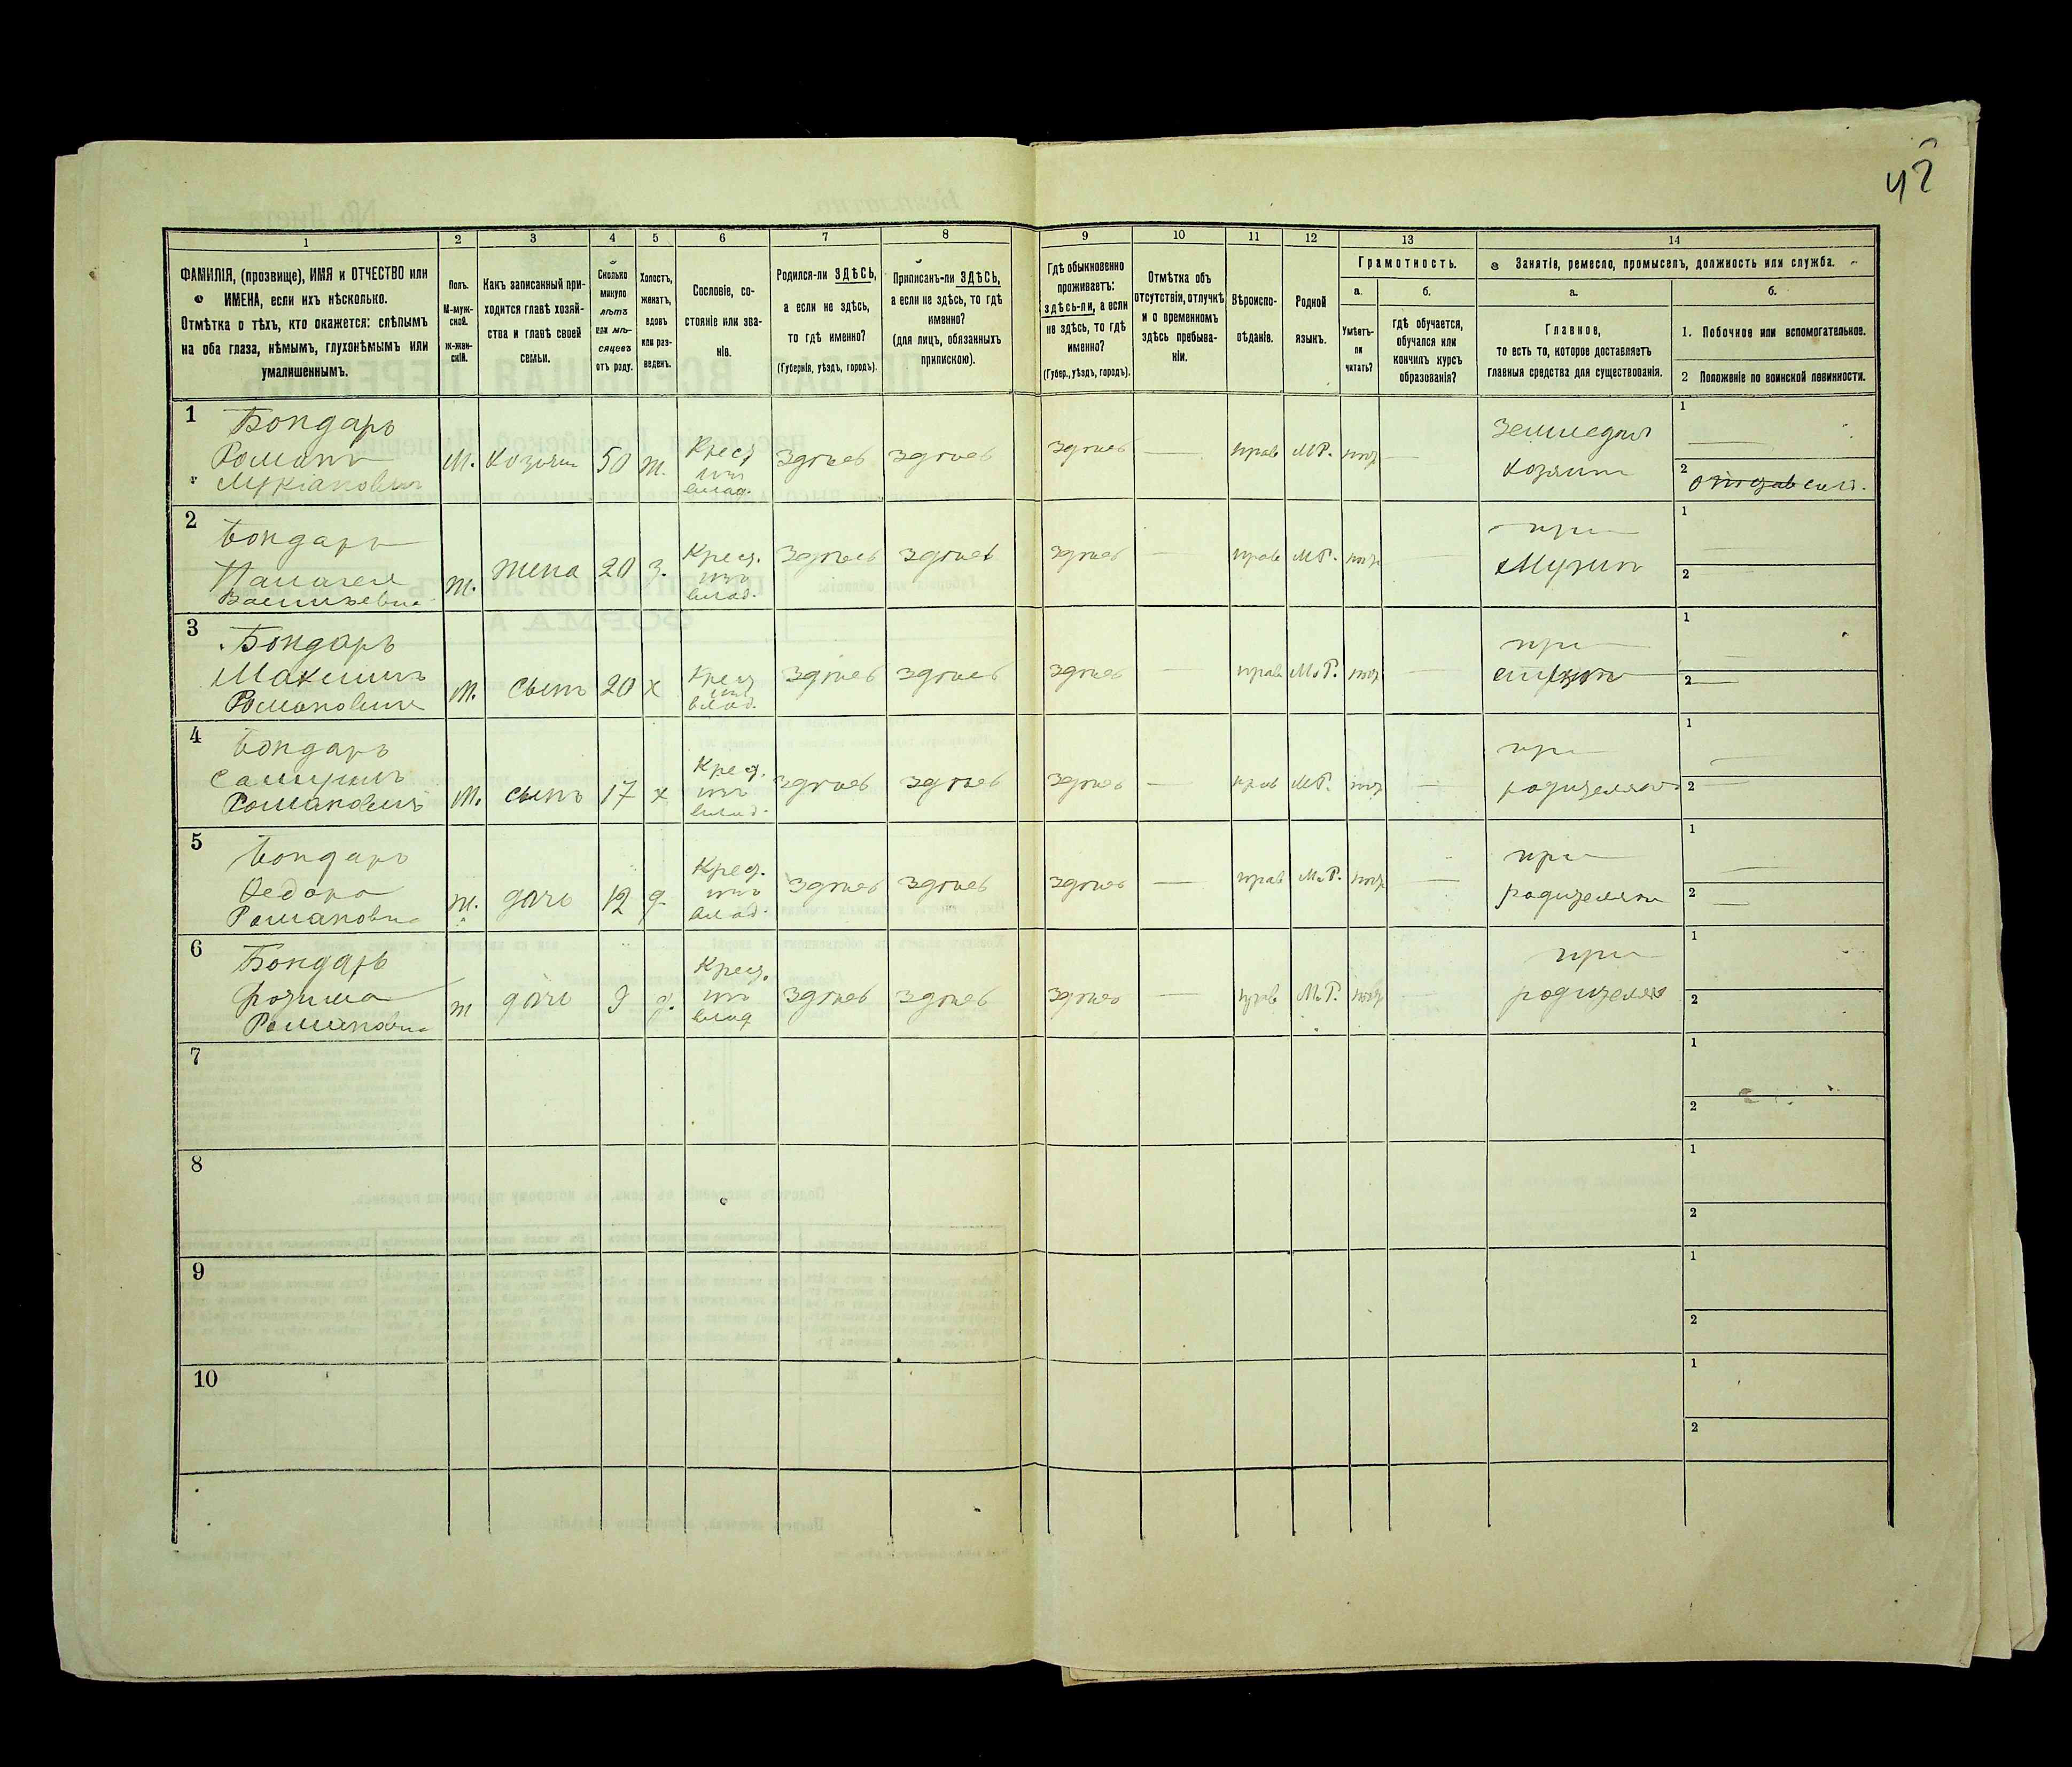 42
1 2 3 4 5 6 7 8 9 10 11 12 13 14
ФАМИЛІЯ, (прозвище), ИМЯ и ОТЧЕСТВО или
ИМЕНА, если ихъ нѣсколько.
Отмѣтка о тѣхъ, кто окажется: слѣпымъ
на оба глаза, нѣмымъ, глухонѣмымъ или
умалишеннымъ.
Полъ.
М-муж-
ской.
Ж-жен-
скій.
Какъ записанный при-
ходится главѣ хозяй-
ства и главѣ своей
семьи.
Сколько
минуло
лѣтъ
или мѣ-
сяцевъ
отъ роду.
Холостъ,
женатъ,
вдовъ
или раз-
веденъ.
Сословіе, со-
стояніе или зва-
ніе.
Родился-ли ЗДѢСЬ,
а если не здѣсь,
то гдѣ именно?
(Губернія, уѣздъ, городъ).
Приписанъ-ли ЗДѢСЬ,
а если не здѣсь, то гдѣ
именно?
(для лицъ, обязанныхъ
припискою).
Гдѣ обыкновенно
проживаетъ:
здѣсь-ли, а если
не здѣсь, то гдѣ
именно?
(Губер., уѣздъ, городъ).
Отмѣтка объ
отсутствіи, отлучкѣ
и о временномъ
здѣсь пребыва-
ніи.
Вѣроиспо-
вѣданіе.
Родной
языкъ.
Грамотность.
а.
Умѣетъ-
ли
читать?
б.
гдѣ обучается,
обучался или
кончилъ курсъ
образованія?
Занятіе, ремесло, промыселъ, должность или служба.
а.
Главное,
то есть то, которое доставляетъ
главныя средства для существованія.
б.
1. Побочное или вспомогательное.
2 Положеніе по воинской повинности.
1 Бондарь
Романъ
м. Хозяин 50 ж. Крест изъ влад. здѣсь здѣсь здѣсь — прав М.Р. нѣт — Земледел хозяин 1 — 2
2 Бондарь
Васильевна
ж. жена 20 з. Крест. изъ влад. здѣсь здѣсь здѣсь — прав М.Р. нѣт — при мужѣ 1 — 2
3 Бондарь
Максимъ
Романовичъ
м. сынъ 20 х Крест изъ влад. здѣсь здѣсь здѣсь — прав М.Р. нѣт — при 1 — 2 —
4 Бондарь
Романовичъ
м. сынъ 17 х Крест. изъ влад. здѣсь здѣсь здѣсь — прав М.Р. нѣт — при родителяхъ 1 — 2 —
5 Бондарь
Федора
Романовна
ж. дочь 12 д. Крест. изъ влад. здѣсь здѣсь здѣсь — прав М.Р. нѣт — при родителях 1 — 2 —
6 Бондарь
Романовна
ж дочь 9 д. Крест. изъ влад здѣсь здѣсь здѣсь — прав М.Р. нѣт — при родителях 1 2
7 1 2
8 1 2
9 1 2
10 1 2